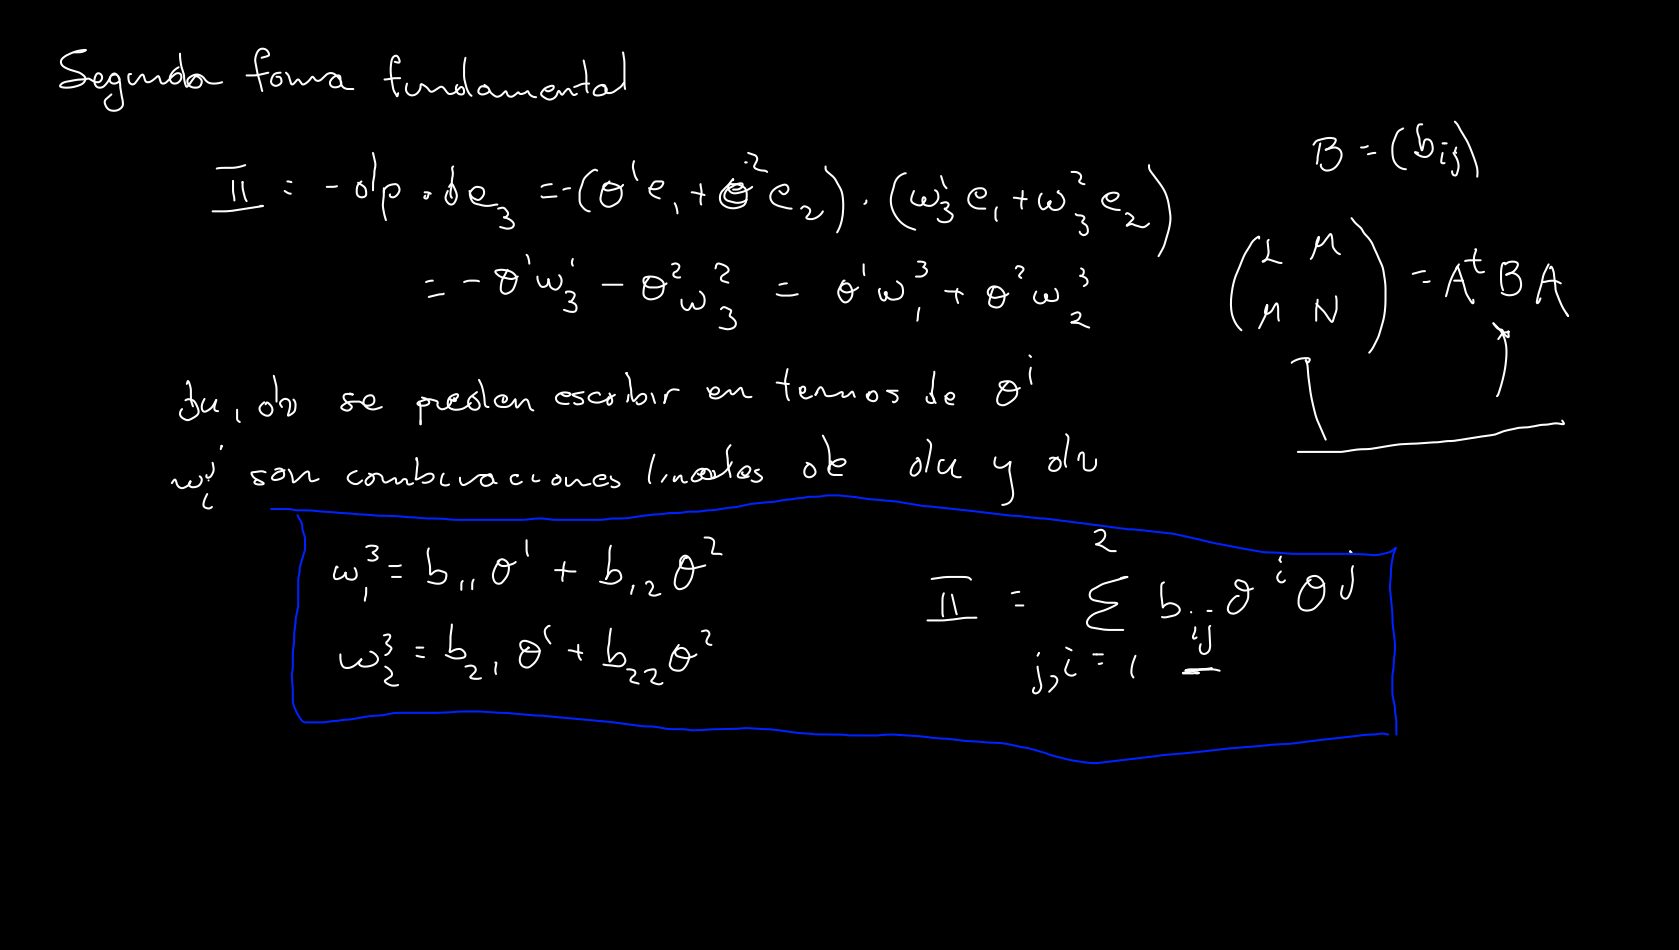 Segunda forma fundamental
II = - dp · de₃ = -(θ¹e₁ + θ²e₂) · (ω₃¹e₁ + ω₃²e₂)
= - θ¹ω₃¹ - θ²ω₃² = θ¹ω₁³ + θ²ω₂³
B = (b_ij)
(L M
M N) = Aᵗ B A
du, dv se pueden escribir en termos de θⁱ
ω_iʲ son combinaciones lineales de du y dv
ω₁³ = b₁₁θ¹ + b₁₂θ²
ω₂³ = b₂₁θ¹ + b₂₂θ²
II = Σ_{j,i=1}^{2} b_ij θⁱθʲ